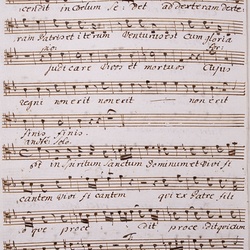 cendit in Coelum se: Det ad dexteram dexte:
ram Patris et iterum Venturus est Cum gloria
judicare Vivos et mortuos Cujus
regni non erit non erit
finis finis.
Solo.
Et in Spiritum Sanctum Dominum et Vivi fi
cantem Vivi fi cantem qui ex Patre fili
o que proce dit proce dit